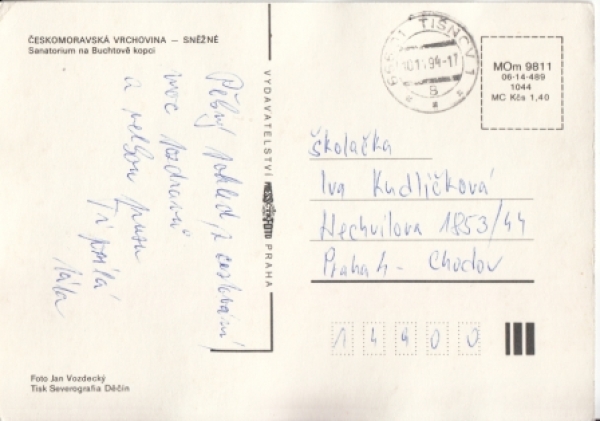 ČESKOMORAVSKÁ VRCHOVINA — SNĚŽNÉ
Sanatorium na Buchtově kopci
Pěkný pohled z cestování,
moc pozdravů
a velkou pusu
Ti posílá
táta
VYDAVATELSTVÍ PRESSFOTO PRAHA
TIŠNOV 1
10.11.94-17
MOm 9811
06-14-489
1044
MC Kčs 1,40
Školačka
Iva Kudličková
Hechvilova 1853/44
Praha 4 - Chodov
14900
Foto Jan Vozdecký
Tisk Severografia Děčín